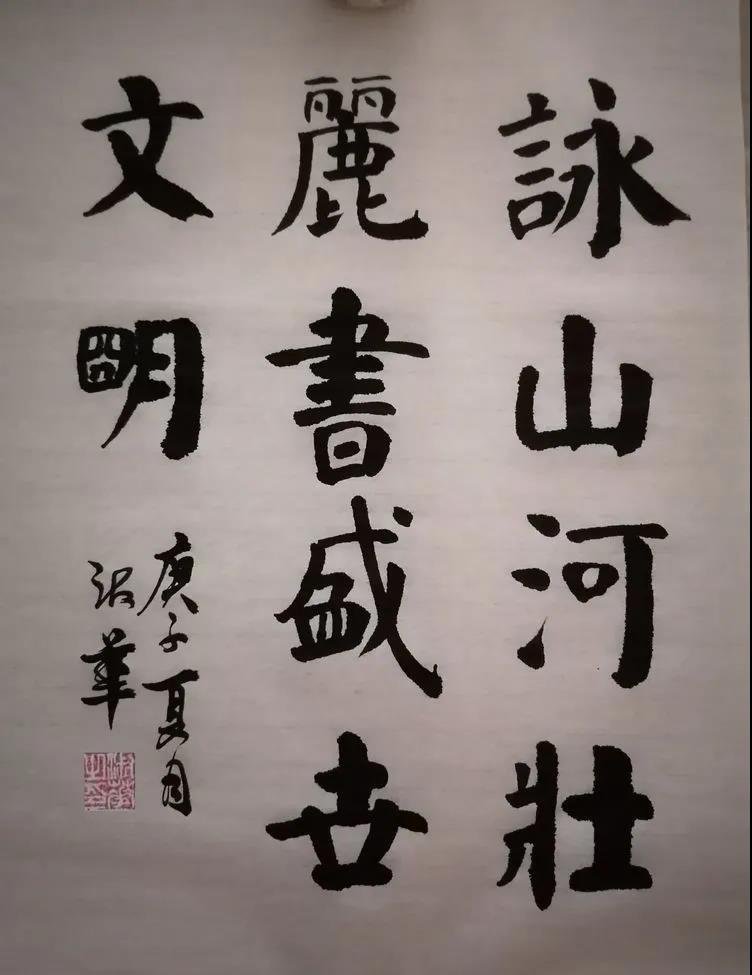 詠山河壯
麗書盛世
文明
庚子夏月
华